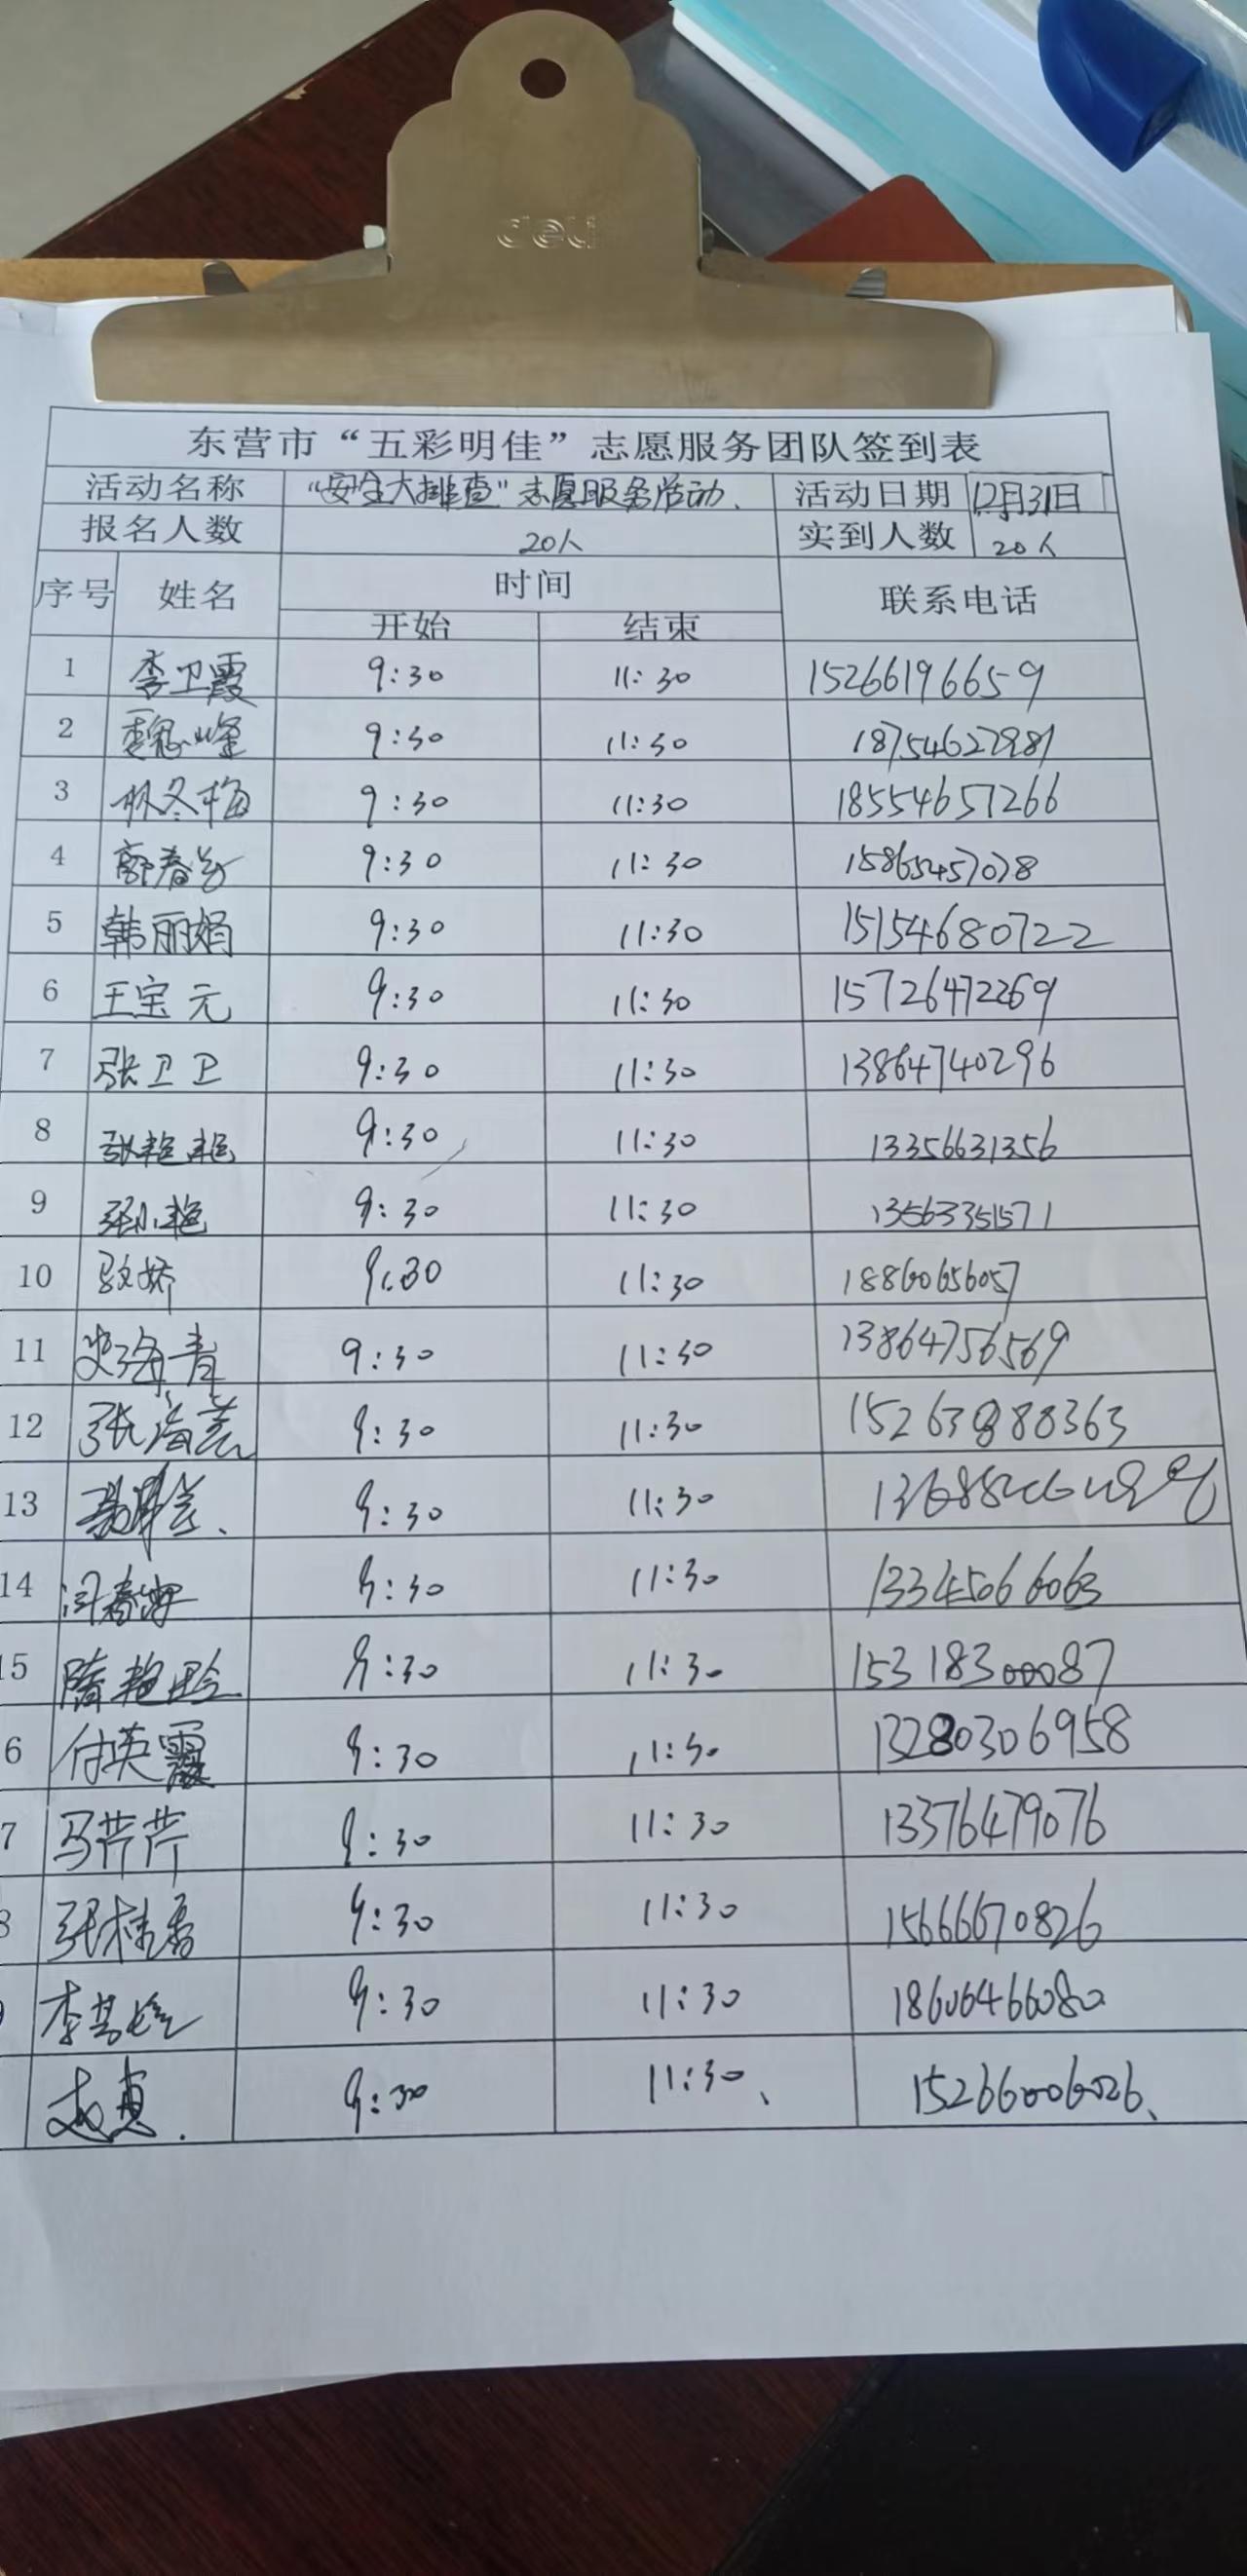 deli
东营市“五彩明佳”志愿服务团队签到表
活动名称 “安全大排查”志愿服务活动. 活动日期 12月31日
报名人数 20人 实到人数 20人
序号 姓名 时间 联系电话
开始 结束
1 李卫霞 9:30 11:30 15266196659
2 9:30 11:30 18754627981
3 林冬梅 9:30 11:30 18554657266
4 郭春芳 9:30 11:30 15865457078
5 韩丽娟 9:30 11:30 15154680722
6 王宝元 9:30 11:30 15726472269
7 张卫卫 9:30 11:30 13864740296
8 张艳艳 9:30 11:30 13356631356
9 张小艳 9:30 11:30 13563351571
10 9:30 11:30 18860656057
11 史海青 9:30 11:30 13864756569
12 张海燕 9:30 11:30 15263988363
13 9:30 11:30
14 闫春海 9:30 11:30 13345066063
15 隋艳玲 9:30 11:30 15318300087
6 付英霞 9:30 11:30 13280306958
7 马芹芹 9:30 11:30 13376479076
8 张桂香 9:30 11:30 15666670826
9 9:30 11:30 18606466080
9:30 11:30、 15266006026、